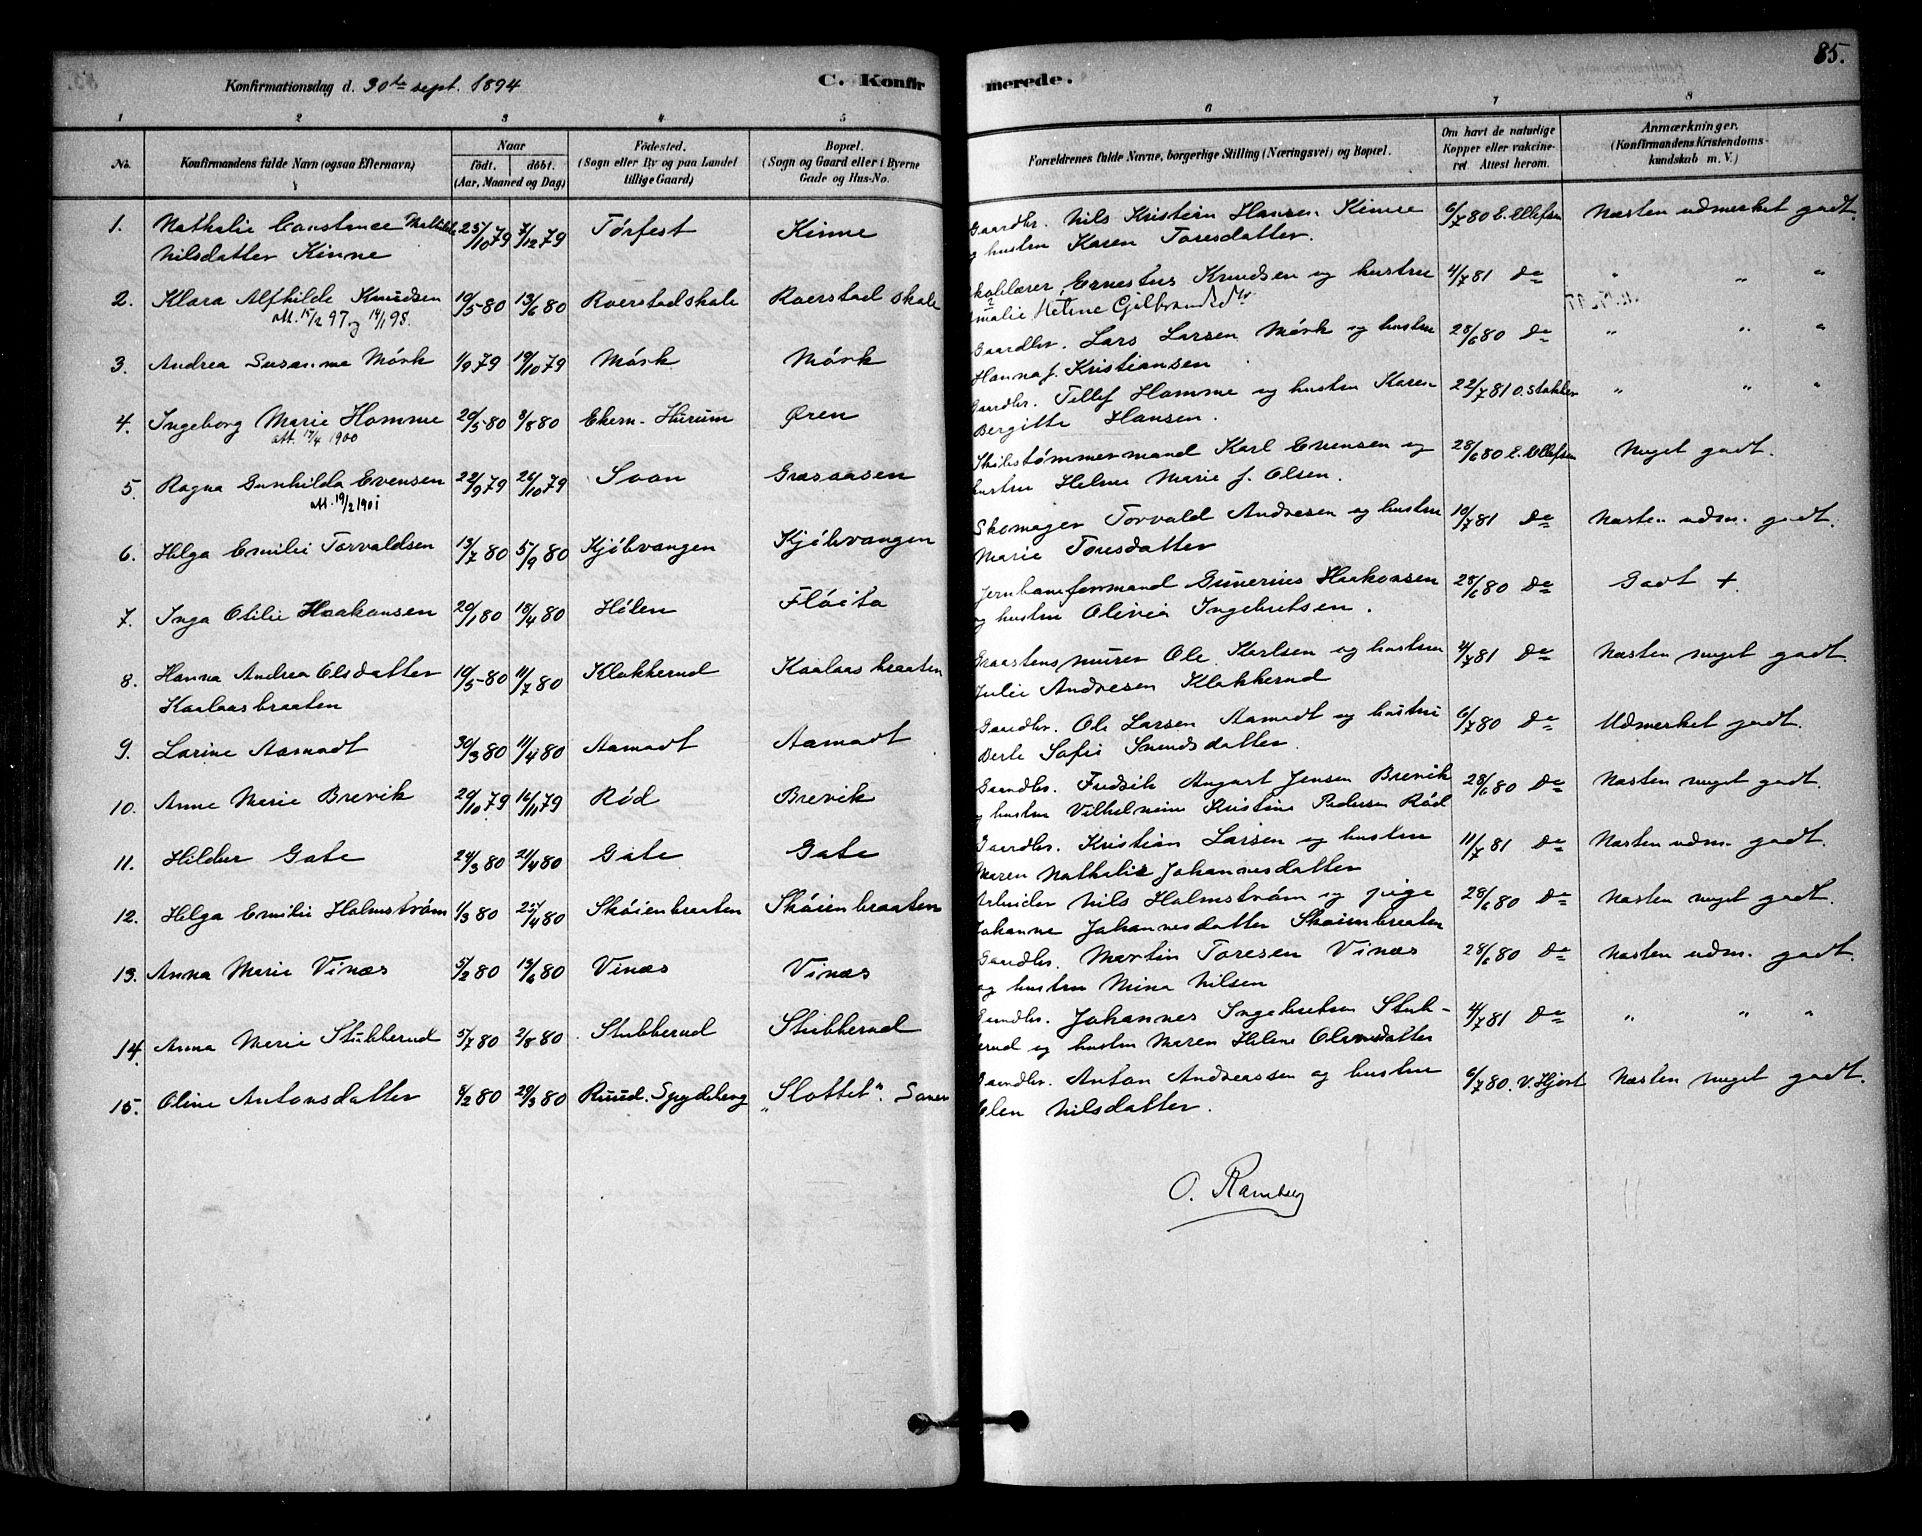 85.
Konfirmationsdag d. 30de sept. 1894
C. Konfirmerede.
1 2 3 4 5 6 7 8
No. Konfirmandens fulde Navn (ogsaa Efternavn). Naar födt. döbt. (Aar, Maaned og Dag) Födested. (Sogn eller By og paa Landet tillige Gaard) Bopæl. (Sogn og Gaard eller i Byerne Gade og Hus-No. Forældrenes fulde Navne, borgerlige Stilling (Næringsvei) og Bopæl. Om havt de naturlige Kopper eller vakcineret Attest herom. Anmærkninger. (Konfirmandens Kristendomskundskab m. V.)
1. Nathalie Constance Mathilde 25/10 79 7/12 79 Törfest Kinne Gaardbr. Nils Kristian Hansen Kinne 6/7 80 E. Ellefsen Næsten udmerket godt.
Nilsdatter Kinne og hustru Karen Toresdatter.
2. Klara Alfhilde Knudsen 19/5 80 13/6 80 Roerstadskole Roerstad skole Skolelærer Ernestus Knudsen og hustru 4/7 81 do " " "
att. 15/12 97 og 14/1 98. Amalie Helene Gjelbrandsdtr.
3. Andrea Susanne Mörk 1/9 79 19/10 79 Mörk Mörk Gaardbr. Lars Larsen Mörk og hustru 28/6 80 do " " "
Hanna f. Kristiansen
4. Ingeborg Marie Homme 20/5 80 3/8 80 Ekern - Hurum Ören Gaardbr. Tellef Homme og hustru Karen 22/7 81 O. Stokker " " "
att. 17/4 1900 Bergitte Hansen.
5. Ragna Gunhilda Evensen 22/9 79 26/10 79 Soon Græsaasen Skibstömmermand Karl Evensen og 28/6 80 E. Ellefsen Meget godt.
att. 19/2 1901 hustru Helene Marie f. Olsen.
6. Helga Emilie Torvaldsen 13/7 80 5/9 80 Kjöbvangen Kjöbvangen Skomager Torvald Andresen og hustru 10/7 81 do Næsten udm. godt.
Marie Toresdatter
7. Inga Otilie Haakonsen 20/1 80 18/4 80 Hölen Flöita Jernbaneformand Gunerius Haakonsen 28/6 80 do Godt +
og hustru Olivia Ingebretsen.
8. Hanna Andrea Olsdatter 19/5 80 11/7 80 Klokkerud Kaalaasbraaten Graastensmurer Ole Karlsen og hustru 4/7 81 do Næsten meget godt.
Kaalaasbraaten Julie Andresen Klokkerud
9. Larine Aamodt 30/3 80 11/4 80 Aamodt Aamodt Gaardbr. Ole Larsen Aamodt og hustru 6/7 80 do Udmerket godt.
Berte Sofie Svendsdatter.
10. Anne Marie Brevik 20/10 79 16/11 79 Röd Brevik Gaardbr. Fredrik August Jensen Brevik 28/6 80 do Næsten meget godt.
og hustru Vilhelmine Kristine Pedersen Röd
11. Hilder Gate 24/3 80 21/4 80 Gate Gate Gaardbr. Kristian Larsen og hustru 11/7 81 do Næsten udm. godt.
Maren Nathalie Johannesdatter
12. Helga Emilie Holmström 1/3 80 25/4 80 Sköienbraaten Sköienbraaten Arbeider Nils Holmström og pige 28/6 80 do Næsten meget godt.
Johanne Johannesdatter Sköienbraaten
13. Anna Marie Vinæs 5/2 80 13/6 80 Vinæs Vinæs Gaardbr. Martin Toresen Vinæs 28/6 80 do Næsten udm. godt.
og hustru Mina Nilsen
14. Anna Marie Stubberud 5/7 80 2/8 80 Stubberud Stubberud Gaardbr. Johannes Ingebretsen Stub- 4/7 81 do " " "
berud og hustru Maren Helene Olavesdatter
15. Oline Antonsdatter 8/2 80 29/3 80 Ruud. Spydeberg "Slottet". Soner Gaardbr. Anton Andreassen og hustru 6/7 80. V. Hjort Næsten meget godt.
Elen Nilsdatter.
O. Ramberg